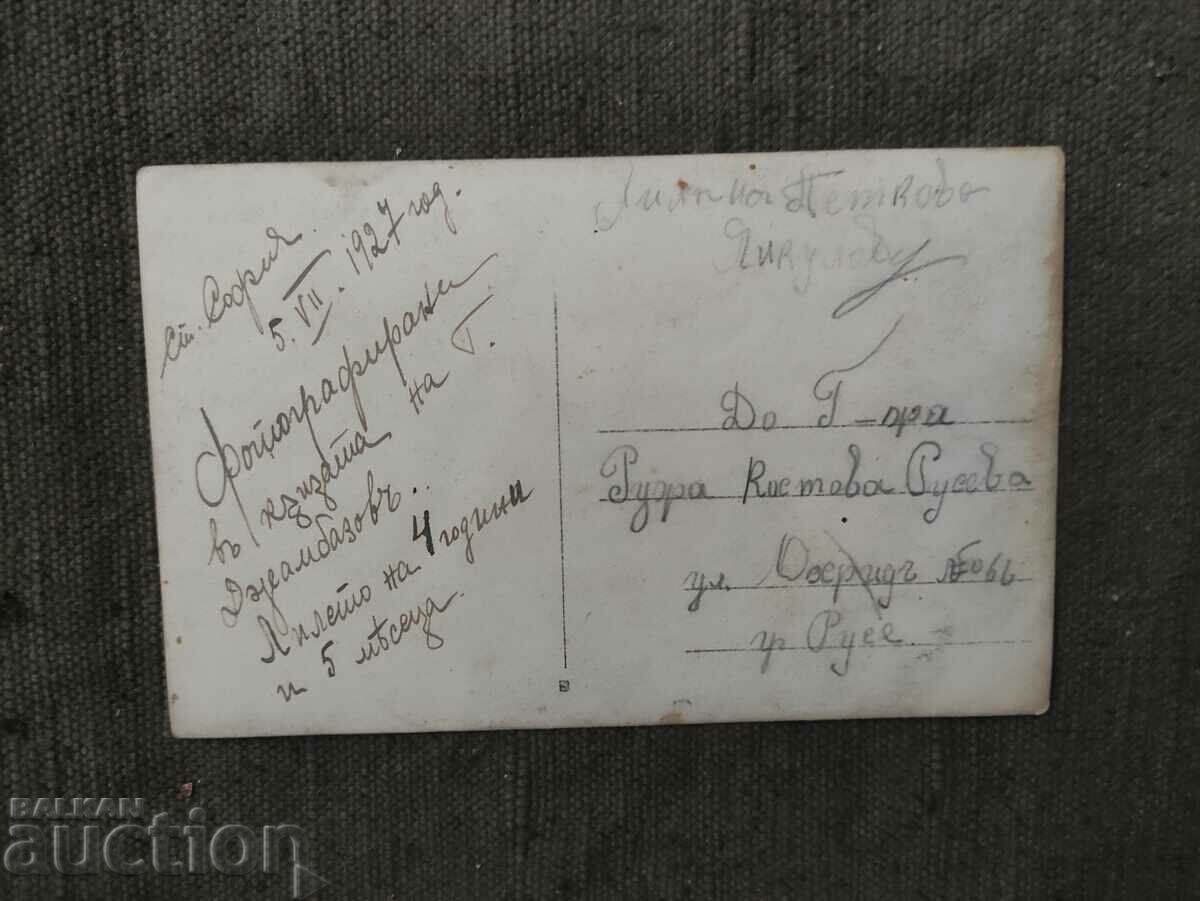 ст. София
5. VII. 1927 год.
Фотографирани
въ къщата на Г.
Джамбазовъ..
Лилето на 4 години
и 5 месеца.
Петкова
До Г-жа
Костова Русева
ул. Охридъ №
гр Русе
BALKAN
auction